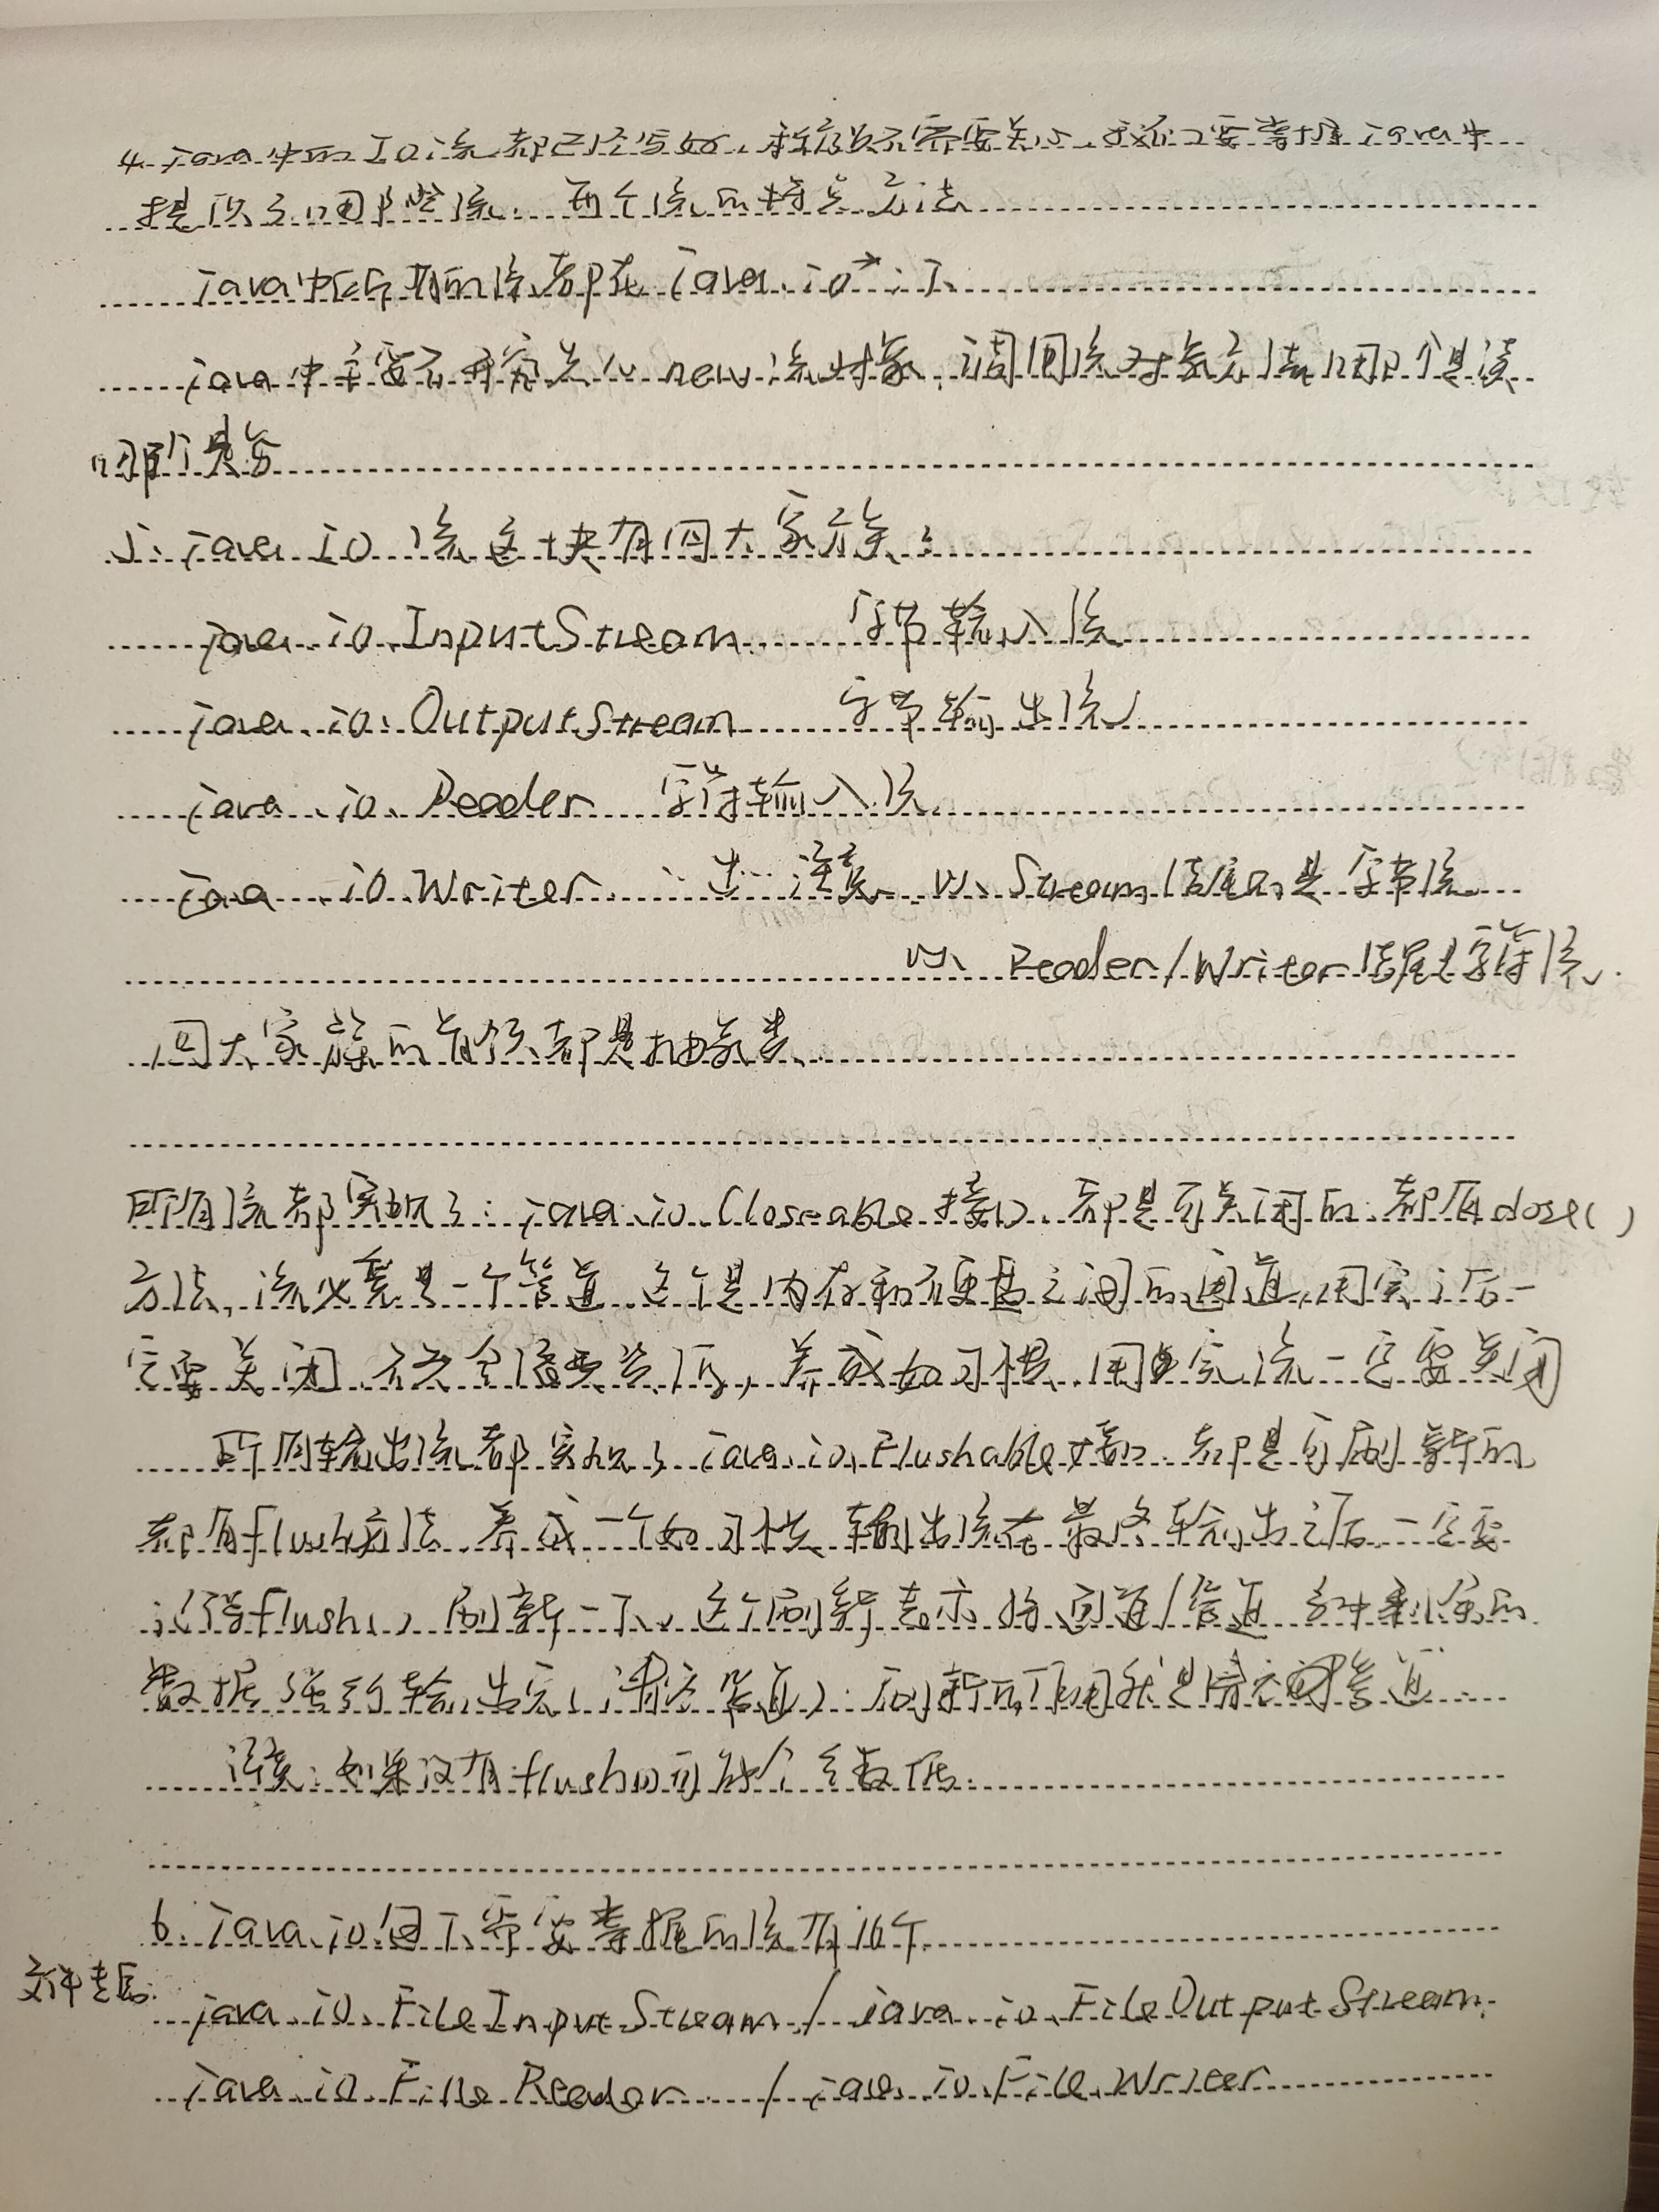 4. java中的IO流都已经写好,我们不需要关心,我们只要掌握java中
提供了哪些流,每个流的特点方法
java中所有的流都在java.io.*;下
java中主要还是研究怎么new流对象,调用流对象方法哪个是读
哪个是写
5. java io 流这块有四大家族:
java.io.InputStream 字节输入流
java.io.OutputStream 字节输出流
java.io.Reader 字符输入流
java.io.Writer 〃 出〃 注意 以 Stream 结尾的是字节流
以 Reader/Writer结尾是字符流
四大家族的首领都是抽象类
所有流都实现了:java.io.Closeable接口,都是可关闭的,都有close()
方法,流必竟是一个管道,这个是内存和硬盘之间的通道,用完之后一
定要关闭,不然会 养成好习惯,用完流一定要关闭
所有输出流都实现了java.io.Flushable接口,都是可刷新的
都有flush方法,养成一个好习惯,输出流在最终输出之后,一定要
记得flush()刷新一下,这个刷新表示将通道/管道 当中剩余的
数据强行输出完(清空管道)刷新的作用就是清空管道
注意:如果没有flush()可能会丢数据.
6. java.io包下需要掌握的流有16个
文件专属:
java.io.FileInputStream / java.io.FileOutputStream
java.io.FileReader / java.io.FileWriter